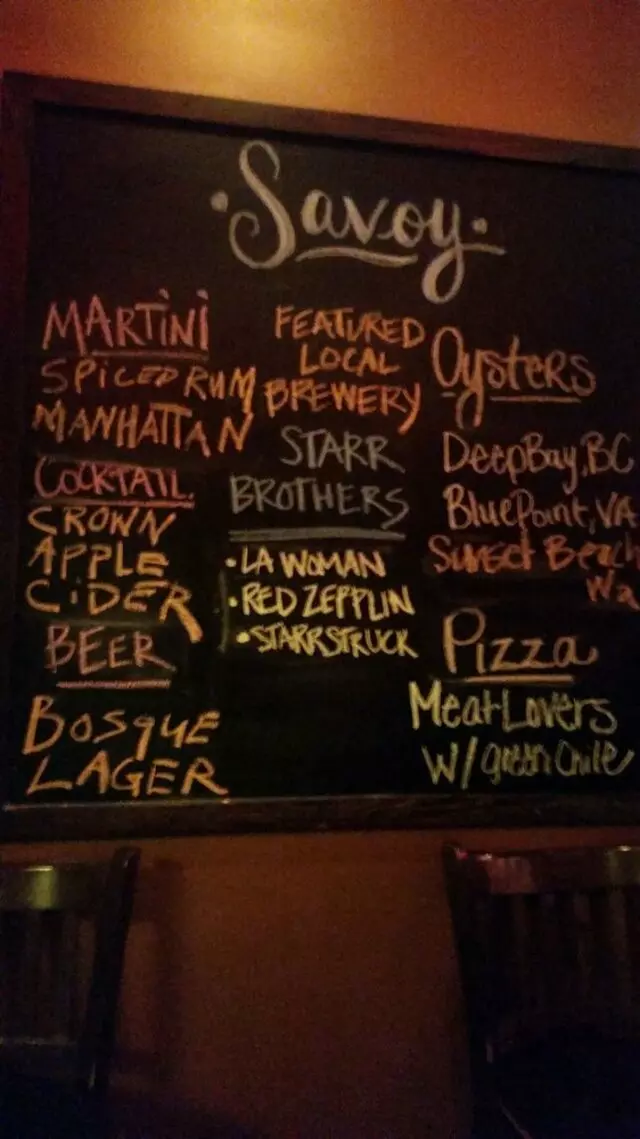 Savoy
MARTiNi
SPICED RUM
MANHATTAN
COCKTAIL
CROWN
APPLE
CiDER
BEER
BOSQUE
LAGER
FEATURED
LOCAL
BREWERY
STARR
BROTHERS
• LA WOMAN
• RED ZEPPLIN
• STARRSTRUCK
Oysters
DeepBay, BC
BluePoint, VA
Sunset Beach
Wa
Pizza
Meat Lovers
W/ green Chile